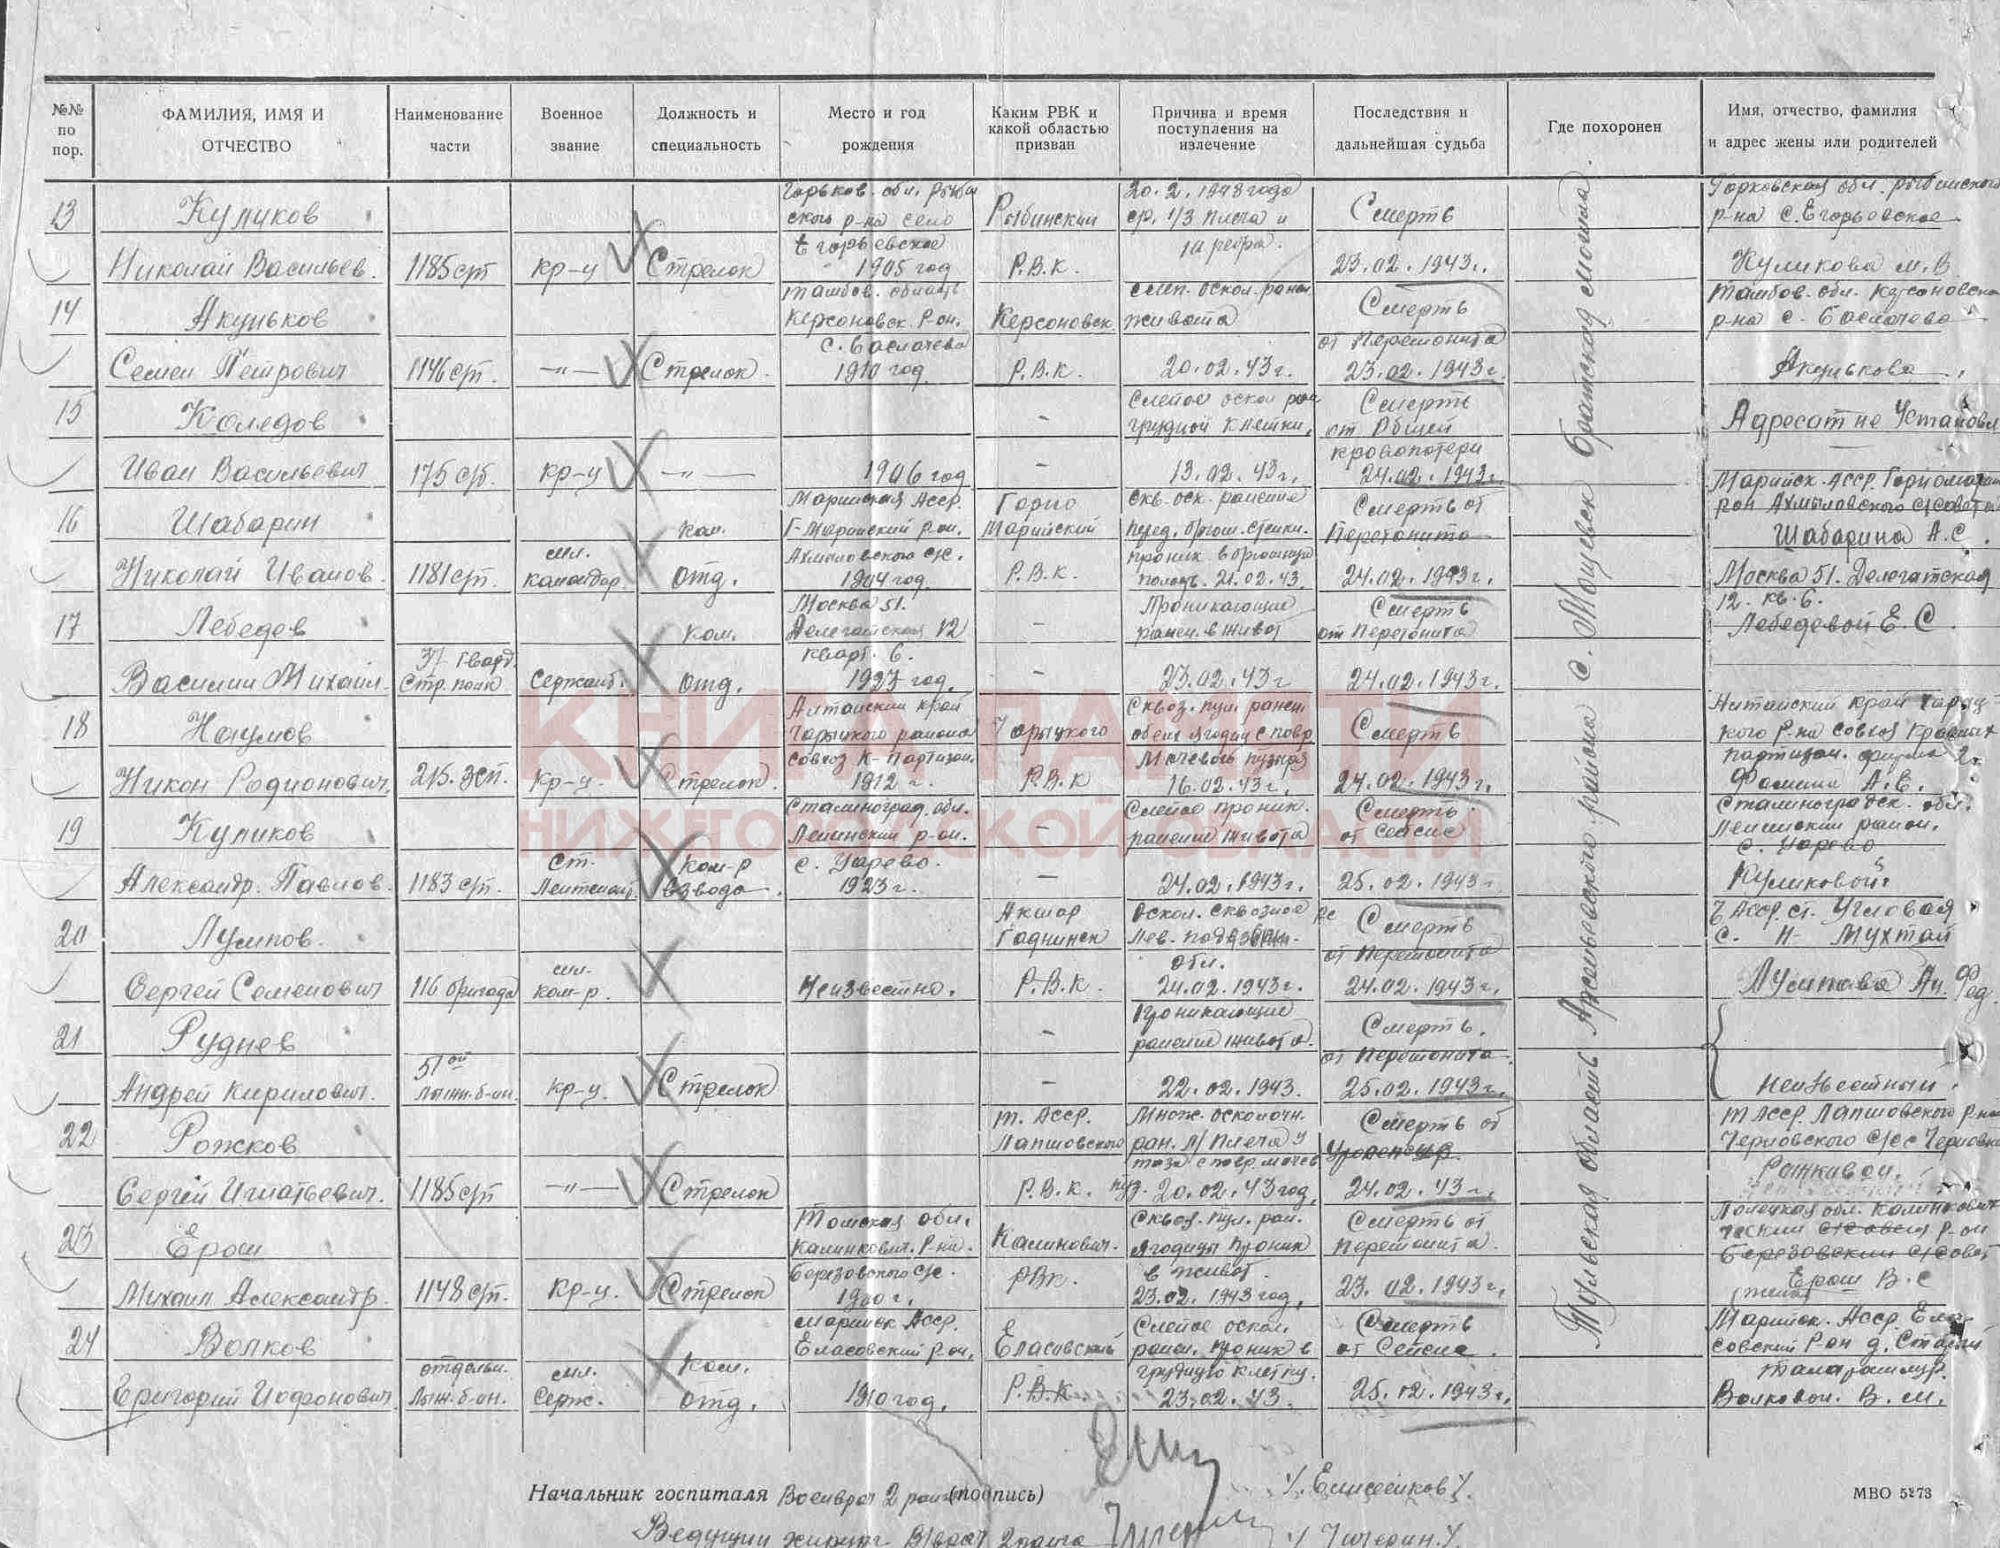 №№ по пор.
ФАМИЛИЯ, ИМЯ И ОТЧЕСТВО
Наименование части
Военное звание
Должность и специальность
Место и год рождения
Каким РВК и какой областью призван
Причина и время поступления на излечение
Последствия и дальнейшая судьба
Где похоронен
Имя, отчество, фамилия и адрес жены или родителей
13
Куликов
Николай Васильев.
1185 с/п
кр-ц
Стрелок
Горьков. обл.
ского р-на село
Егорьевское
1905 год
Рыбинский
Р.В.К.
20.2.1943 года
ср. 1/3 плеча и
ребра.
Смерть
23.02.1943г.
Горковская обл. Рыбинского
р-на с. Егорьевское
Куликова М.В.
14
Акуньков
Семен Петрович
1146 с/п.
-"-
Стрелок.
Тамбов. область
Керсоновск. р-он.
1910 год
Керсоновск.
Р.В.К.
живота
20.02.43г.
Смерть
от Перетонита
23.02.1943г.
Тамбов. обл.
р-на с.
Акунькова
15
Коледов
Иван Васильевич
175 с/б.
кр-ц
-"-
1906 год
-
-
Слепое оскол ран
грудной клетки,
13.02.43г.
Смерть
от Общей
кровопотери
24.02.1943г.
Адресат не Установл
16
Шабарин
Николай Иванов.
1181 с/п.
мл.
командир.
Ком.
отд.
Марийская Асср.
Г-Марийский р-он.
1904 год
Горно
Марийский
Р.В.К.
Скв. оск. ранение
перед. брюш. стенки.
проник. в брюшную
полость. 21.02.43.
Смерть от
Перетонита
24.02.1943г.
Марийск. Асср.
Шабарина А.С.
17
Лебедев
Василий Михаил.
37 Гвард.
Стр. полк
Сержант.
Ком.
отд.
Москва 51.
Делегатская 12
кварт. 6.
1923 год.
-
-
Проникающие
ранен. в живот
23.02.43г
Смерть
от Перетонита
24.02.1943г.
Москва 51. Делегатская
12. кв. 6.
Лебедевой Е.С.
18
Наумов
Никон Родионович.
215. зсп.
Кр-ц.
Стрелок.
Алтайский край
района
совхоз К-Партизан.
1912 г.
Р.В.К
Сквоз. пул. ранен
обеих ягодиц с повр
Мочевого пузыря
16.02.43г.
Смерть
24.02.1943г.
Алтайский край
кого р-на совхоз Красных
партизан. ферма 2.
А.Е.
19
Куликов
Александр. Павлов.
1183 с/п.
Ст.
Лейтенант.
Ком-р
взвода
Сталинград. обл.
Ленинский р-он.
с. Царево.
1923 г.
-
-
Слепое проник.
ранение живота
24.02.1943г.
Смерть
от Сепсис
25.02.1943г.
Сталинградск. обл.
Ленинский район.
с. Царево
Куликовой.
20
Лумпов.
Сергей Семенович
116 бригада
мл.
ком-р.
Неизвестно.
Р.В.К.
Оскол. сквозное
Лев.
обл.
24.02.1943г.
Смерть
от Перетонита
24.02.1943г.
Асср. ст. Угловая
с.
Мухтай
Лумпова Ан. Фед.
21
Руднев
Андрей Кирилович.
51ой
лыжн. б-он.
кр-ц.
Стрелок
-
-
Проникающие
ранение живота.
22.02.1943.
Смерть.
от Перетонита
25.02.1943г.
Неизвестный.
22
Рожков
Сергей Игнатьевич.
1185 с/п
-"-
Стрелок
Т. Асср.
Лапшовского
Р.В.К.
Множ. осколочн.
ран. л/ плеча и
таза с повр. мочев
пуз. 20.02.43 год.
Смерть от
24.02.43г.
Т Асср. Лапшовского р-на
23
Ерош
Михаил Александр.
1148 с/п.
Кр-ц.
Стрелок
обл.
Калинкович. р-на.
Березовского с/с.
1900 г.
Калинович.
РВК.
Сквоз. пул. ран.
ягодицы проник
в живот.
23.02.1943 год.
Смерть от
Перетонита.
23.02.1943г.
обл. Калинкович
р-он
Березовский с/совет
Ерош В.С
24
Волков
Григорий
отдельн.
лыж. б-он.
мл.
Серж.
Ком.
отд.
Марийск Асср.
Еласовский р-он.
1910 год.
Еласовский
Р.В.К.
Слепое оскол.
ранен. проник в
грудную клетку.
23.02.43.
Смерть
от Сепсис.
25.02.1943г.
Марийск. Асср. Ела-
совский р-он д. Старый
Волковой. В.М.
Тульская область Арсеньевского района с. Мощевск братская могила.
КНИГА ПАМЯТИ
НИЖЕГОРОДСКОЙ ОБЛАСТИ
Начальник госпиталя Военврач 2 ранга (подпись) /Елисейков/.
МВО 5273
Ведущий хирург В/врач 2 ранга